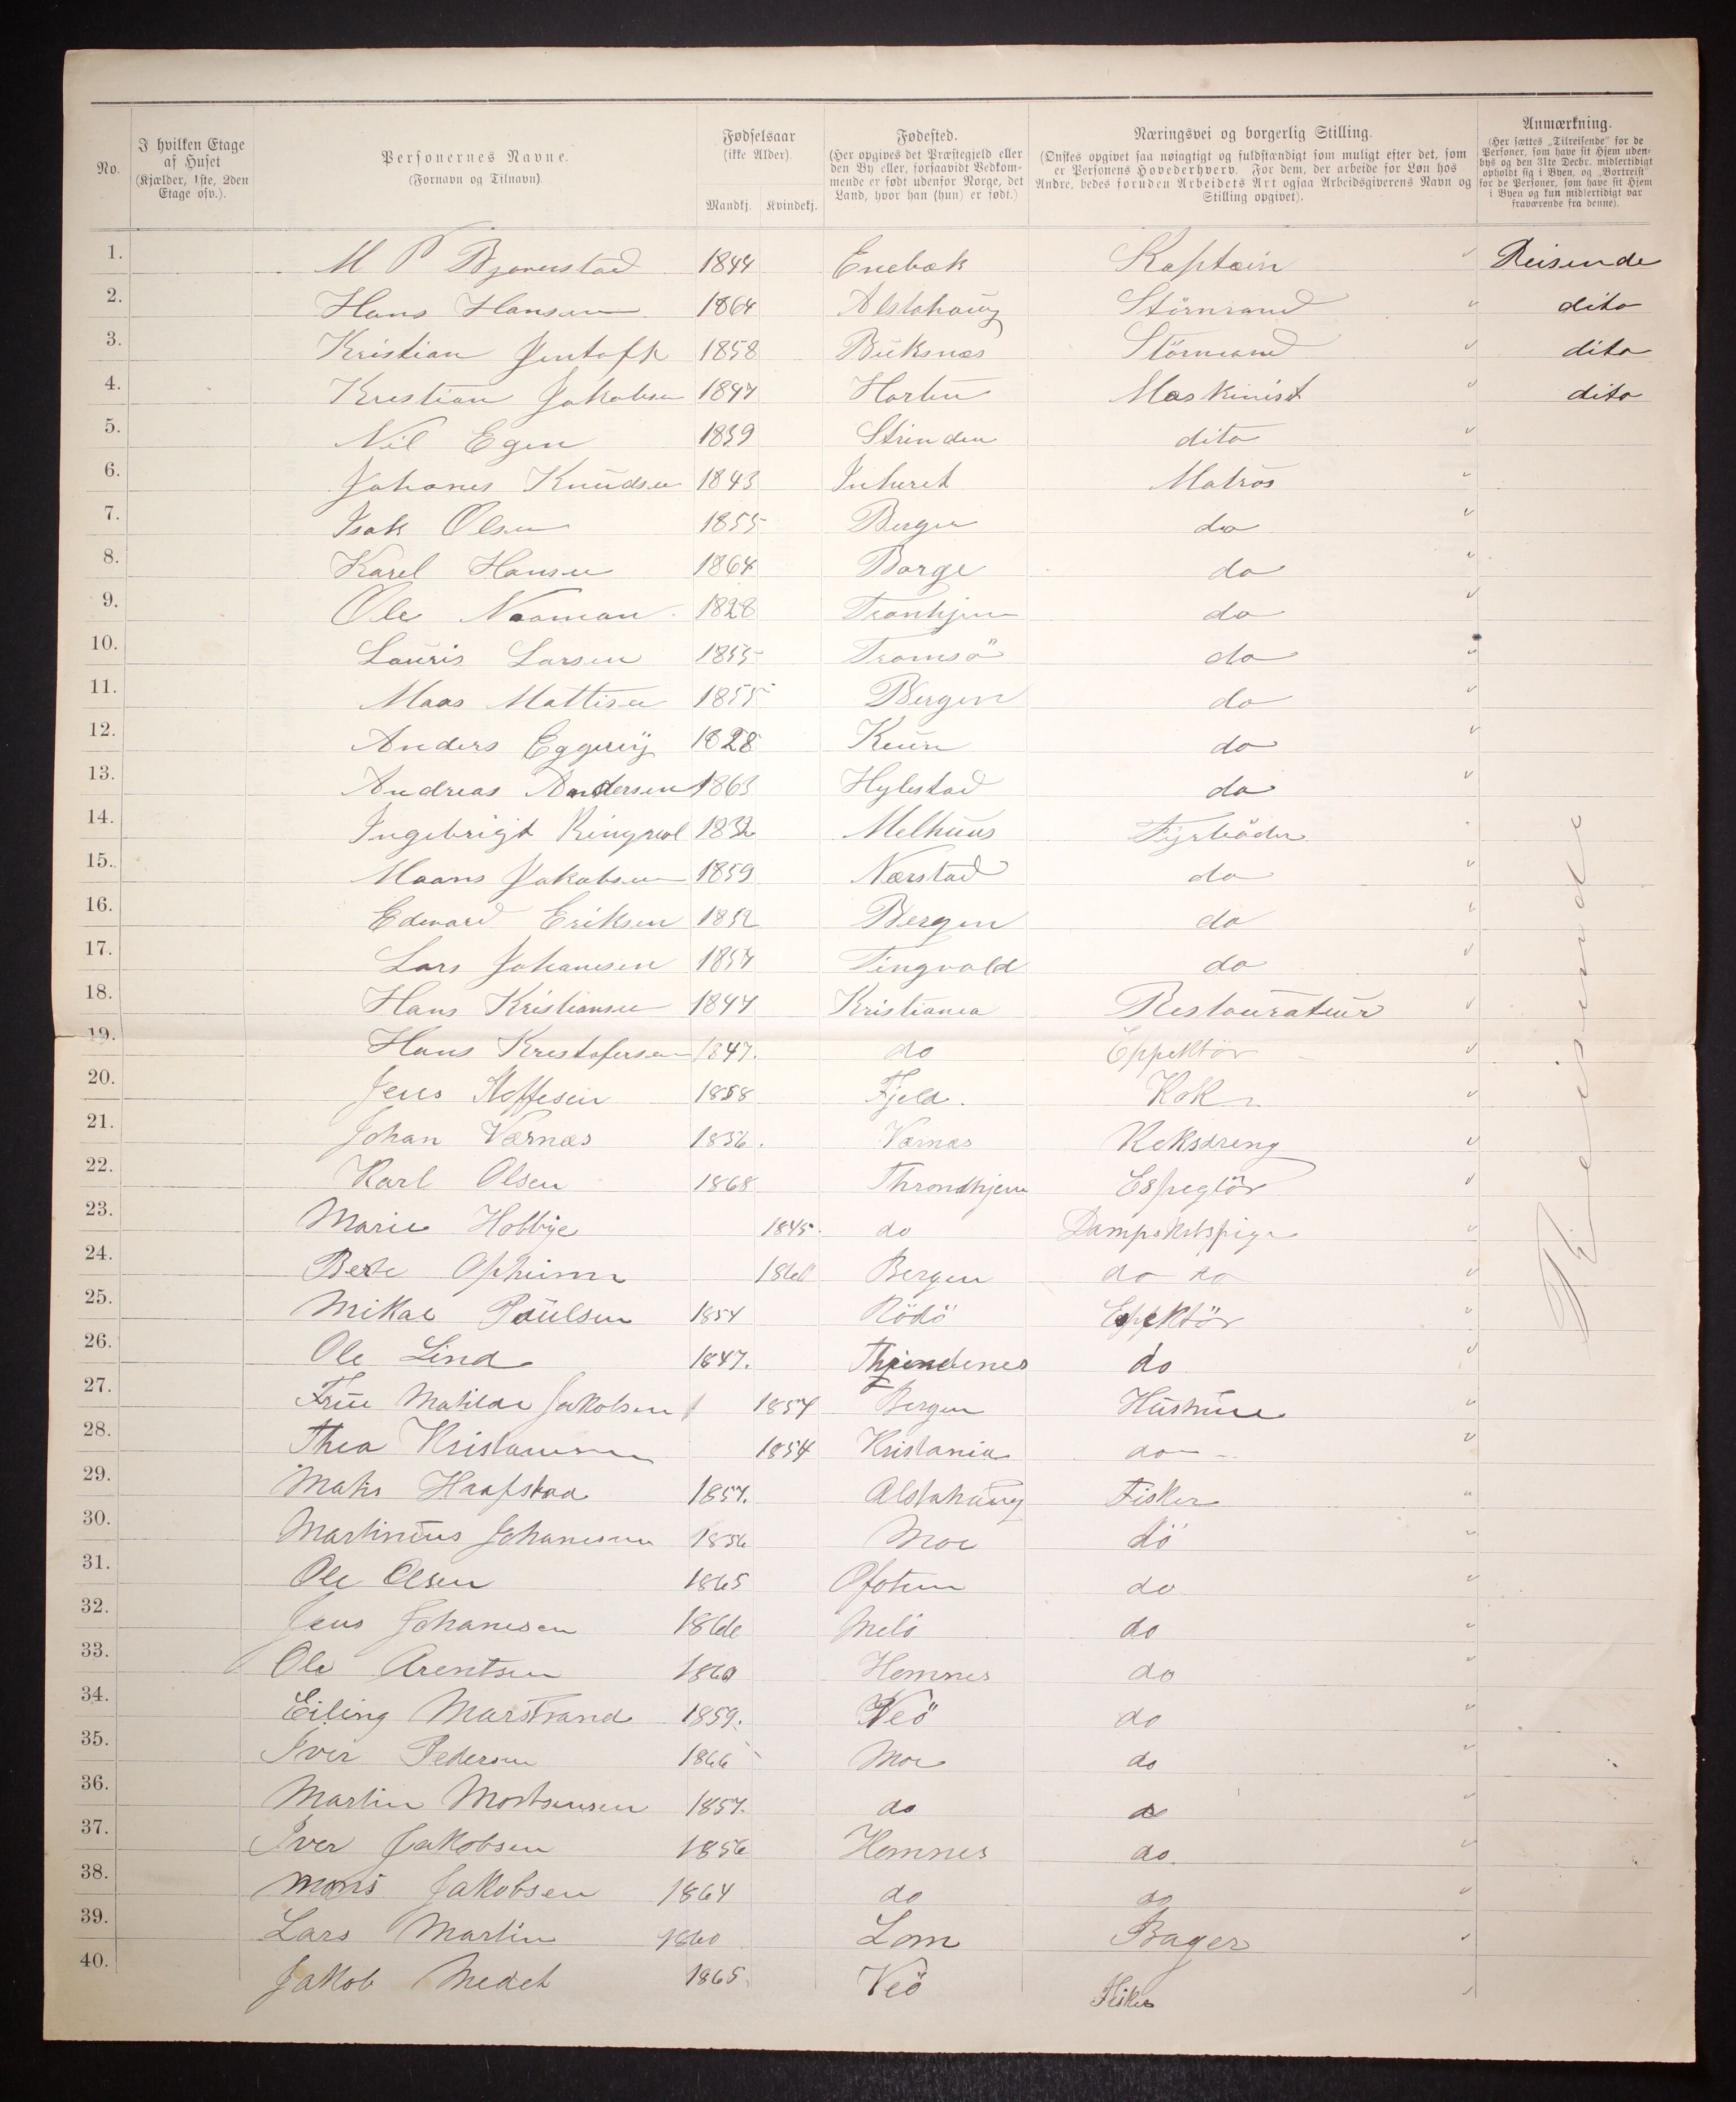 No.
I hvilken Etage
af Huset
(Kjælder, 1ste, 2den
Etage osv.).
Personernes Navne.
(Fornavn og Tilnavn).
Fødselsaar
(ikke Alder).
Mandkj. Kvindekj.
Fødested.
(Her opgives det Præstegjeld eller
den By eller, forsaavidt Vedkom-
mende er født udenfor Norge, det
Land, hvor han (hun) er født.)
Næringsvei og borgerlig Stilling.
(Ønskes opgivet saa nøiagtigt og fuldstændigt som muligt efter det, som
er Personens Hovederhverv. For dem, der arbeide for Løn hos
Andre, bedes foruden Arbeidets Art ogsaa Arbeidsgiverens Navn og
Stilling opgivet).
Anmærkning.
(Her sættes „Tilreisende" for de
Personer, som have sit Hjem uden-
bys og den 31te Decbr. midlertidigt
opholdt sig i Byen, og „Bortreist"
for de Personer, som have sit Hjem
i Byen og kun midlertidigt var
fraværende fra denne).
1. M P Bjonerstad 1844 Enebak Kaptein Reisende
2. Hans Hansen 1864 Alstahaug Störmand dito
3. Kristian Jentoft 1858 Buksnæs Störmand dito
4. Kristian Jakobsen 1847 Horten Maskinist dito
5. Nil Egen 1839 Strinden dito
6. Johanes Knudsen 1843 Matros
7. Isak Olsen 1855 Bergen do
8. Karel Hansen 1864 Borge do
9. Ole Naaman 1828 Tronhjem do
10. Lauris Larsen 1855 Tromsö do
11. Maas Mattisen 1855 Bergen do
12. Anders 1828 do
13. Andreas Andersen 1863 Hylestad do
14. Ingebrigt 1832 Melhuus Fyrböder
15. Maans Jakobsen 1859 Nærstad do
16. Edward Eriksen 1852 Bergen do
17. Lars Johanesen 1857 Tingvold do
18. Hans Kristiansen 1847 Kristiania Restaurateur
19. Hans Kristofersen 1847. do Eppektör
20. Jens Stoffesen 1858 Fjeld. Kok
21. Johan Værnæs 1856. Værnæs Koksdreng
22. Karl Olsen 1868 Throndhjem Espegtör
23. Marie Hobbye 1845. do Dampskibspige
24. Berte Opheim 1860 Bergen do do
25. Mikal Paulsen 1854 Rödö Eppektör
26. Ole Lind 1847. do
27. Frue Matilde Jakobsen 1857 Bergen Hustrue
28. Thea Kristiansen 1854 Kristania do
29. Matis Haafstad 1857. Alstahaug Fisker
30. Martinius Johanesen 1856 Moe do
31. Ole Olsen 1865 Ofoten do
32. Jens Johanesen 1866 Melö do
33. Ole Arentsen 1860 Hemnes do
34. Eiling Marstrand 1859. Veö do
35. Iver Pedersen 1866 Moe do
36. Martin Mortensen 1857. do do
37. Iver Jakobsen 1856 Hemnes do
38. Mons Jakobsen 1864 do do
39. Lars Martin 1860 Lom Bager
40. Jakob Medet 1865. Veö Fisker
Reisende